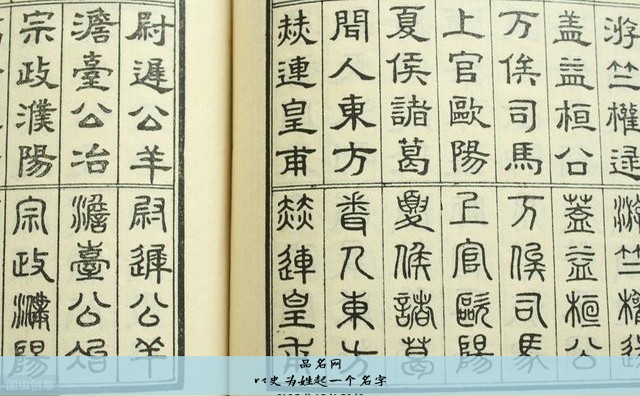 游竺權逯
盖益桓公
万俟司馬
上官歐陽
夏侯諸葛
聞人東方
赫連皇甫
游竺權逯
蓋益桓公
万俟司馬
上官歐陽
夏侯諸葛
聞人東方
赫連皇甫
尉遲公羊
澹臺公冶
宗政濮陽
尉遲公羊
澹臺公冶
宗政濮陽
品名网
以史为姓起一个名字
图虫创意